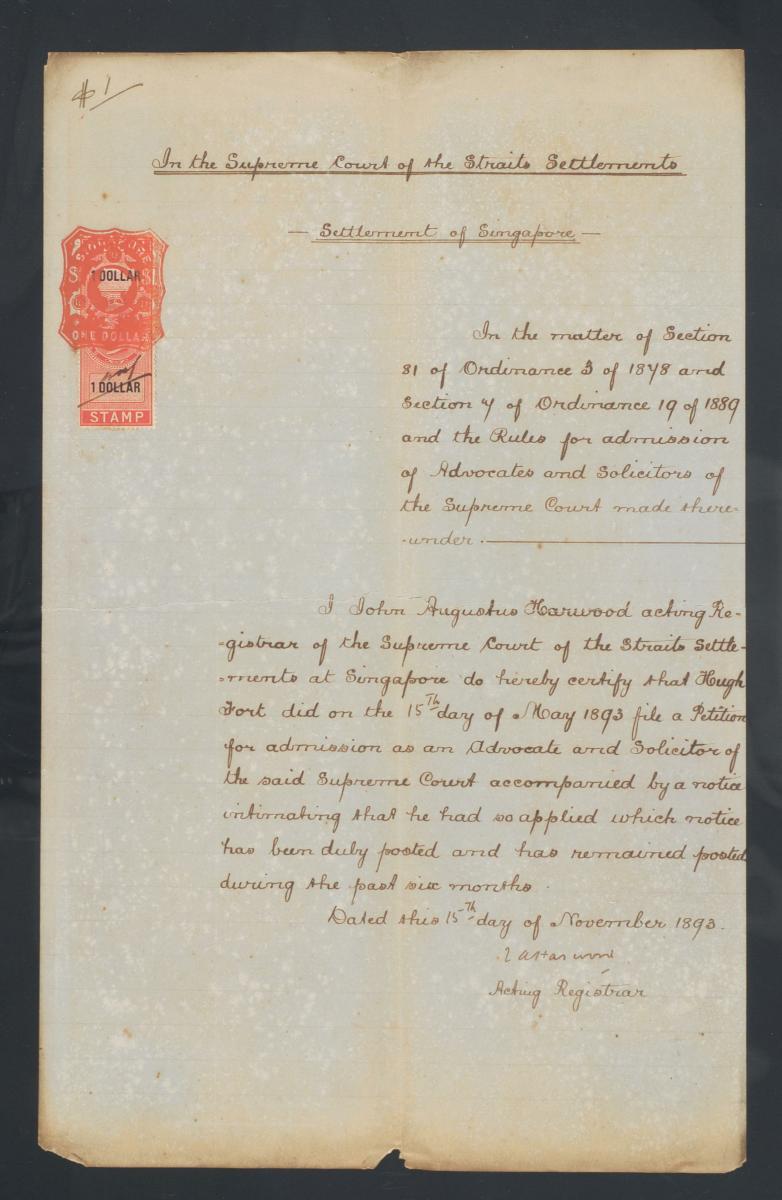 $1
In the Supreme Court of the Straits Settlements
— Settlement of Singapore —
SINGAPORE
1 DOLLAR
ONE DOLLAR
1 DOLLAR
STAMP
In the matter of Section
81 of Ordinance 3 of 1878 and
Section 7 of Ordinance 19 of 1889
and the Rules for admission
of Advocates and Solicitors of
the Supreme Court made there-
-under.
I John Augustus Harwood acting Re-
-gistrar of the Supreme Court of the Straits Settle-
-ments at Singapore do hereby certify that Hugh
Fort did on the 15th day of May 1893 file a Petition
for admission as an Advocate and Solicitor of
the said Supreme Court accompanied by a notice
intimating that he had so applied which notice
has been duly posted and has remained posted
during the past six months.
Dated this 15th day of November 1893.
J A Harwood
Acting Registrar